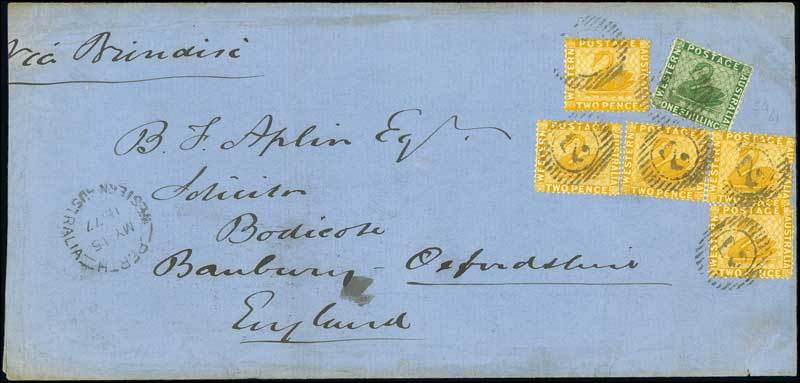 Via Brindisi
B. F. Aplin Esqr.
Solicitor
Bodicote
Banbury - Oxfordshire
England
PERTH
MY 15
77
WESTERN AUSTRALIA
POSTAGE
WESTERN
AUSTRALIA
TWO PENCE
POSTAGE
WESTERN
AUSTRALIA
ONE SHILLING
POSTAGE
WESTERN
TWO PENCE
POSTAGE
WESTERN
TWO PENCE
POSTAGE
WESTERN
AUSTRALIA
TWO PENCE
POSTAGE
WESTERN
AUSTRALIA
TWO PENCE